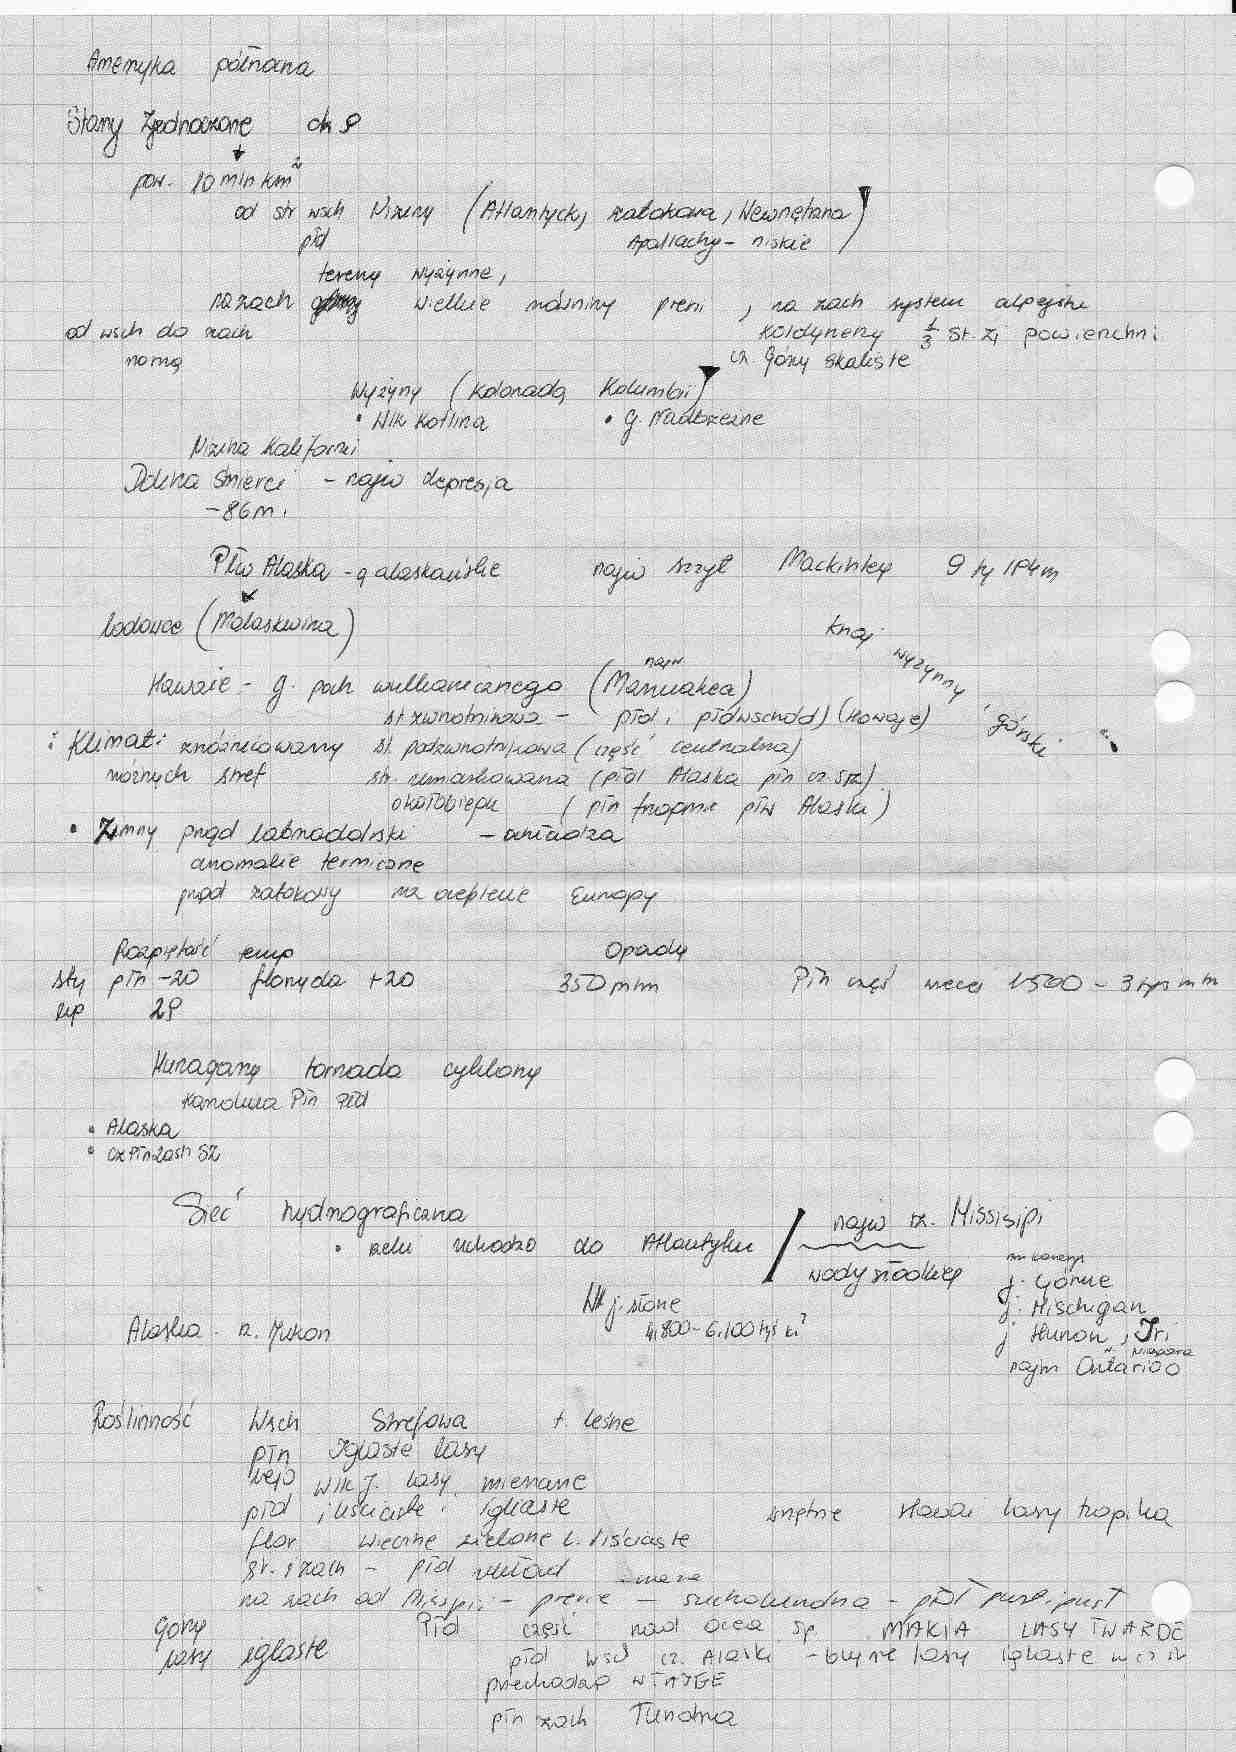 Ameryka północna
Stany Zjednoczone
pow. 10 mln km²
od str wsch Niziny (Atlantyck, zatokowa, Wewnętrzna)
płd Apallachy - niskie
tereny wyżynne,
na zach wielkie równiny prerii , na zach system alpejski
od wsch do zach kordyliery 1/3 St. Zj powierzchni
cz. Góry skaliste
Wyżyny (Kolorado, Kolumbii)
• Wlk Kotlina • g. Nadbrzeżne
Nizina Kaliforni
Dolina Śmierci - najw depresja
- 86 m.
Płw Alaska - g alaskańskie najw szczyt Mackinley
lodowce (Malaskwina) kraj wyżynny, górski
Hawaje - g. poch wulkanicznego (najw Mannakea)
st zwrotnikowa - płd i płdwschód) (Hawaje)
Klimat: zróżnicowany st. podzwrotnikowa (część centralna)
różnych stref str. umiarkowana (płd Alaska płn cz. SZ)
okołobiegu (płn fragme płw Alaski)
• Zimny prąd labradorski - ochładza
anomalie termiczne
prąd zatokowy na ocieplenie Europy
Rozpiętość temp Opady
sty płn -20 floryda +20 350 mm Płn część więcej 1500 - 3 tys mm
lip 28
Huragany tornada cyklony
Płn Płd
• Alaska
• cz Płnzach SZ
Sieć hydrograficzna najw rz. Missisipi
• rzeki uchodzą do Atlantyku wody słodkiej
j. Górne
Wlk j. słone j. Mischigan
Alaska - rz. Jukon j Huron, Iri
Niagara
najm Ontarioo
Roślinność Wsch Strefowa f. leśne
płn Iglaste lasy
rejo wlk J. lasy mieszane
płd liściaste i iglaste wnętrze Hawai lasy tropika
flor wiecznie zielone l. liściaste
na zach od Missipii - prerie - sucholundna - płd
góry Płd część nad ocea śp MAKIA LASY TWARDE
lasy iglaste płd wsd cz. Alaski - bujne lasy iglaste
przechodząc w TAJGE
płn zach Tundra